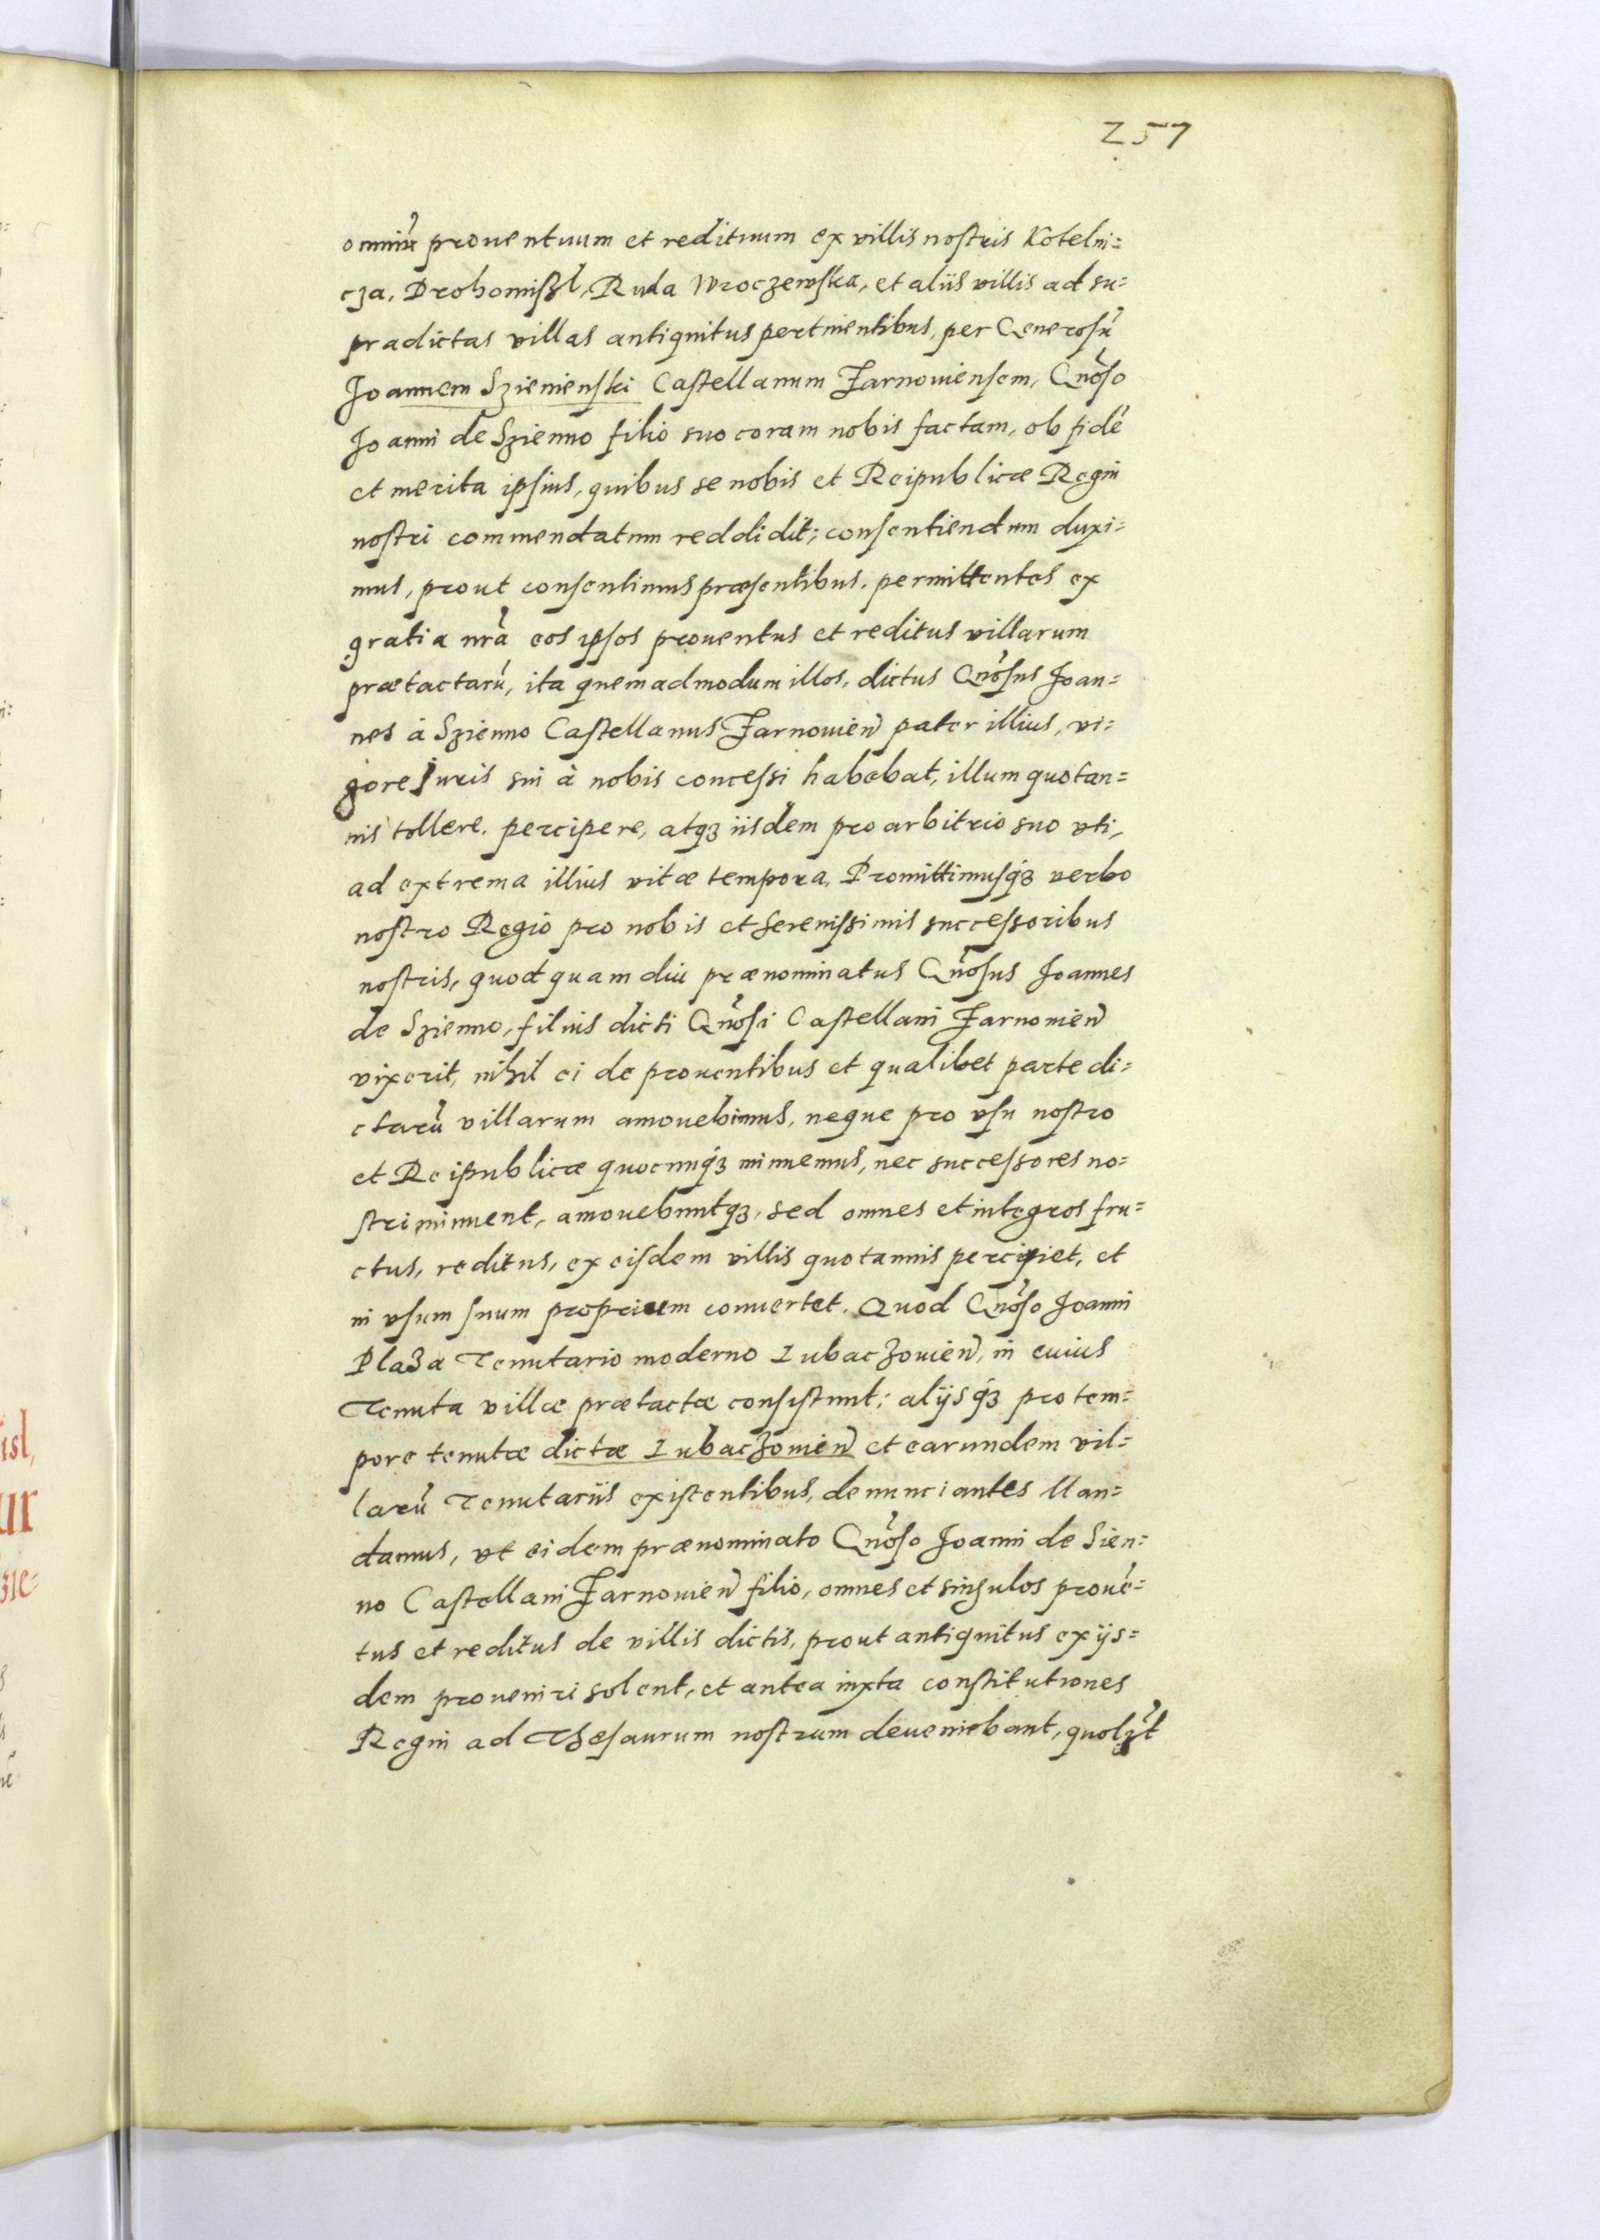 257
omniũ prouentuum et redituum ex villis nostris Kotelni=
cza, Drohomiszl, Ruda Wroczewska, et aliis villis ad su=
pradictas villas antiquitus pertinentibus, per Generosũ
Joannem Szienienski Castellanum Żarnouiensem, Gnõso
Joanni de Szienno filio suo coram nobis factam, ob fidẽ
et merita ipsius, quibus se nobis et Reipublicæ Regni
nostri commendatum reddidit; consentiendum duxi=
mus, prout consentimus præsentibus, permittentes ex
gratia nrã eos ipsos prouentus et reditus villarum
prætactarũ, ita quemadmodum illos, dictus Gnõsus Joan=
nes á Szienno Castellanus Żarnouien̄ pater illius, vi=
gore juris sui à nobis concessi habebat, illum quotan=
nis tollere, percipere, atqȝ iisdem pro arbitrio suo vti,
ad extrema illius vitæ tempora. Promittimusqȝ verbo
nostro Regio pro nobis et Serenissimis successoribus
nostris, quod quam diu prænominatus Gnõsus Joannes
de Szienno, filius dicti Gnõsi Castellani Żarnouien̄
vixerit, nihil ei de prouentibus et qualibet parte di=
ctarũ villarum amouebimus, neque pro vsu nostro
et Reipublicæ quocunqȝ minuemus, nec successores no=
stri minuent, amouebuntqȝ, sed omnes et integros fru=
ctus, reditus, ex eisdem villis quotannis percipiet, et
in vsum suum proprium conuertet. Quod Gnõso Joanni
Plaza Tenutario moderno Lubaczouien̄, in cuius
Tenuta villæ prætactæ consistunt; alijsqȝ pro tem=
pore tenutæ dictæ Lubaczouien̄ et earundem vil=
larũ Tenutariis existentibus, denunciantes Man=
damus, vt eidem prænominato Gnõso Joanni de Sien=
no Castellani Żarnouien̄ filio, omnes et singulos prouẽ=
tus et reditus de villis dictis, prout antiquitus ex ijs=
dem proueniri solent, et antea iuxta constitutiones
Regni ad Thesaurum nostrum deueniebant, quolȝt